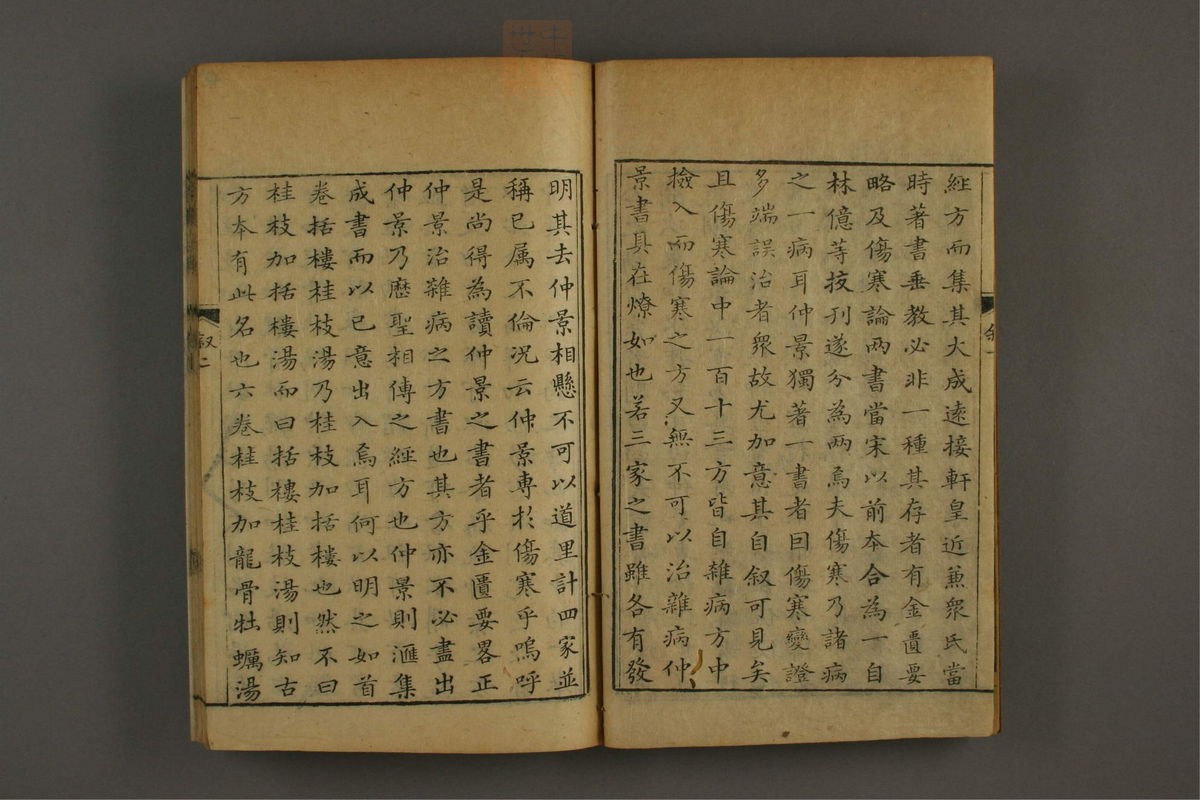 經方而集其大成遠接軒皇近兼衆氏當
時著書垂教必非一種其存者有金匱要
略及傷寒論兩書當宋以前本合為一自
林億等技刊遂分為兩焉夫傷寒乃諸病
之一病耳仲景獨著一書者因傷寒變證
多端誤治者衆故尤加意其自叙可見矣
且傷寒論中一百十三方皆自雜病方中
撿入而傷寒之方又無不可以治雜病仲
景書具在燎如也若三家之書雖各有發
明其去仲景相懸不可以道里計四家並
稱已属不倫况云仲景專於傷寒乎嗚呼
是尚得為讀仲景之書者乎金匱要畧正
仲景治雜病之方書也其方亦不必盡出
仲景乃歷聖相傳之經方也仲景則滙集
成書而以已意出入焉耳何以明之如首
卷括樓桂枝湯乃桂枝加括樓也然不曰
桂枝加括樓湯而曰括樓桂枝湯則知古
方本有此名也六卷桂枝加龍骨牡蠣湯
叙二